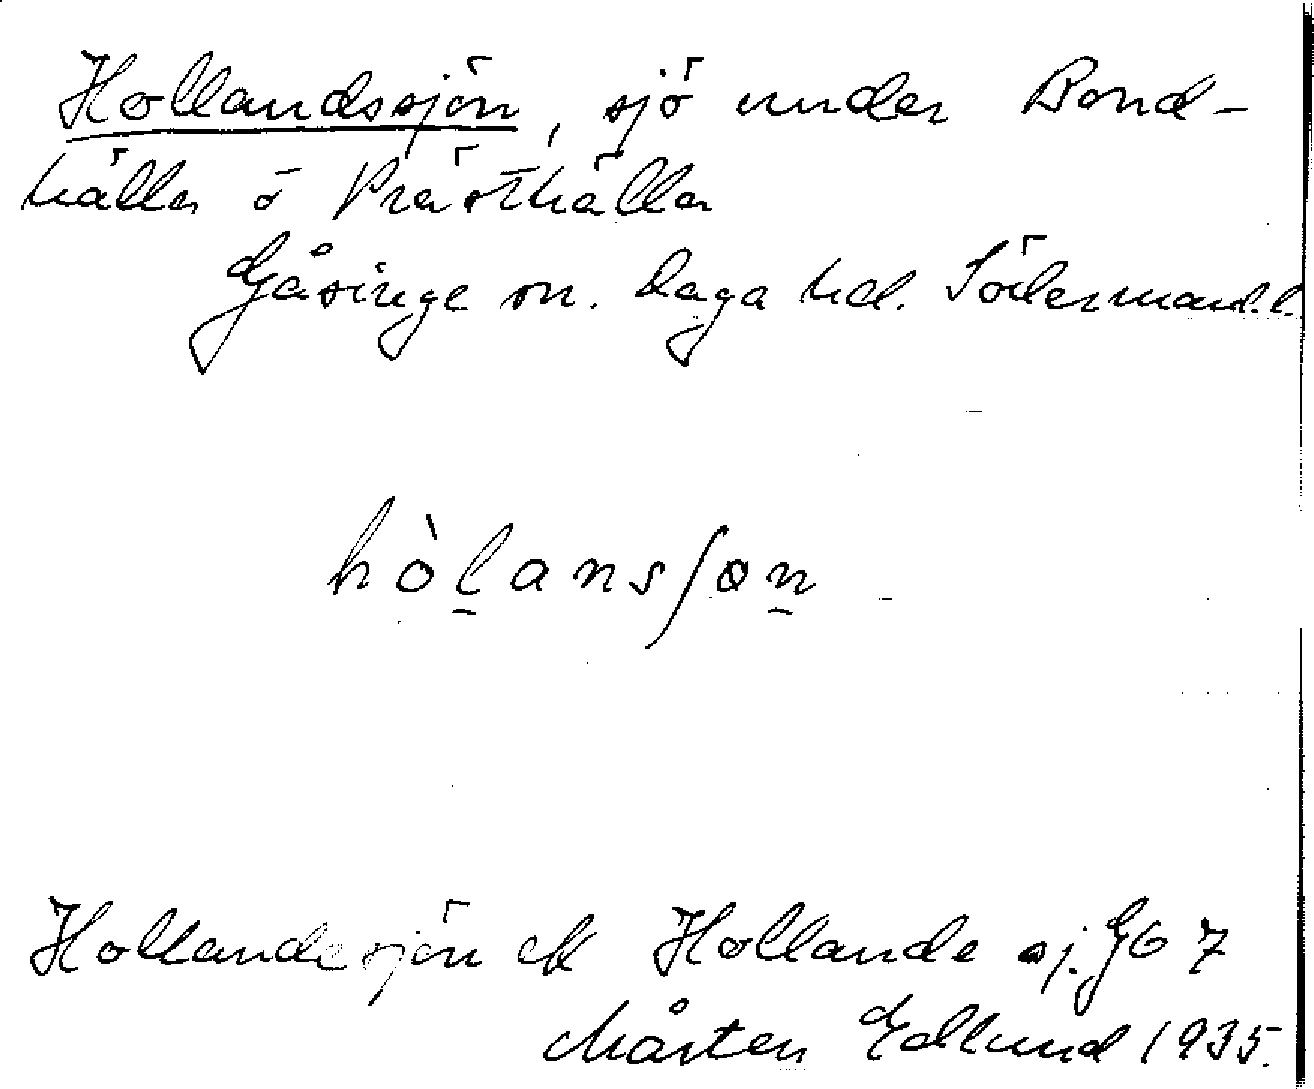 Hollandssjön, sjö under Bond-
hälla o Prästhälla
Gåsinge sn. Daga hd. Södermanl.
hòl̲ansʃøn̲
Hollandesjön ek Hollande sj. Gö 7
Mårten Edlund 1935.